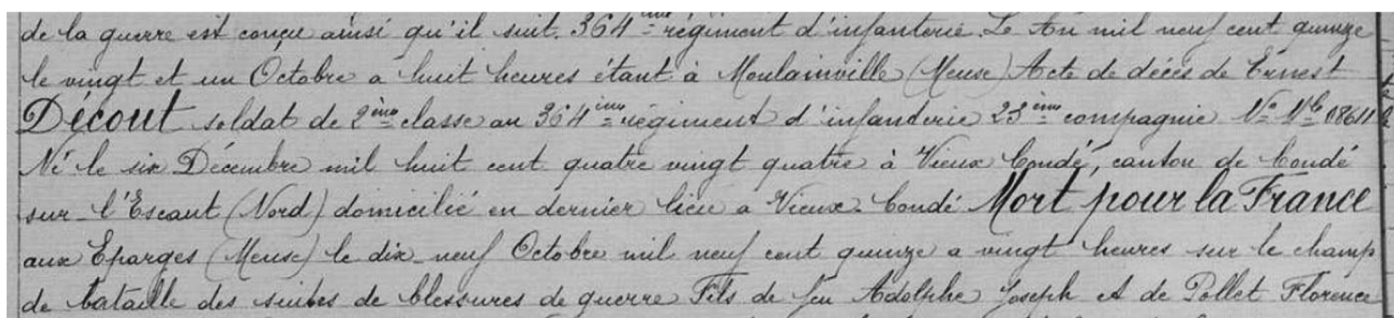 de la guerre est conçu ainsi qu'il suit. 364ème régiment d'infanterie. Le An mil neuf cent quinze
le vingt et un Octobre a huit heures étant à Moulainville (Meuse) Acte de décès de Ernest
Décout soldat de 2ème classe au 364ème régiment d'infanterie 23ème compagnie No Mle 08611
Né le six Décembre mil huit cent quatre vingt quatre à Vieux Condé, canton de Condé
sur l'Escaut (Nord) domicilié en dernier lieu a Vieux-Condé Mort pour la France
aux Eparges (Meuse) le dix-neuf Octobre mil neuf cent quinze a vingt heures sur le champ
de bataille des suites de blessures de guerre Fils de feu Adolphe Joseph et de Pollet Florence